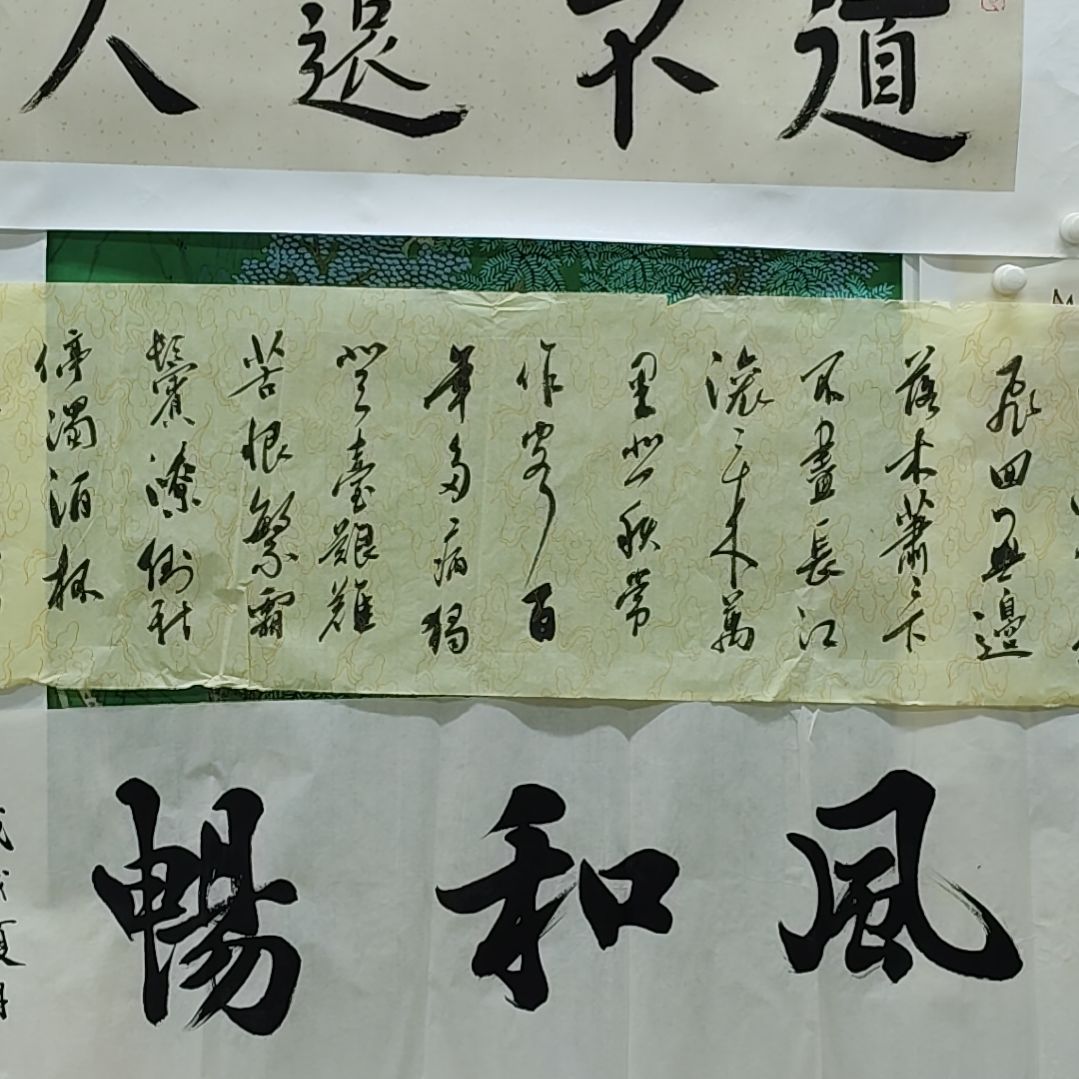 道不遠人
飛回無邊
落木蕭〻下
不盡長江
滾〻来萬
里悲秋常
作客百
年多病獨
登臺艱難
苦恨繁霜
鬢潦倒新
停濁酒杯
風和暢
戊戌夏月